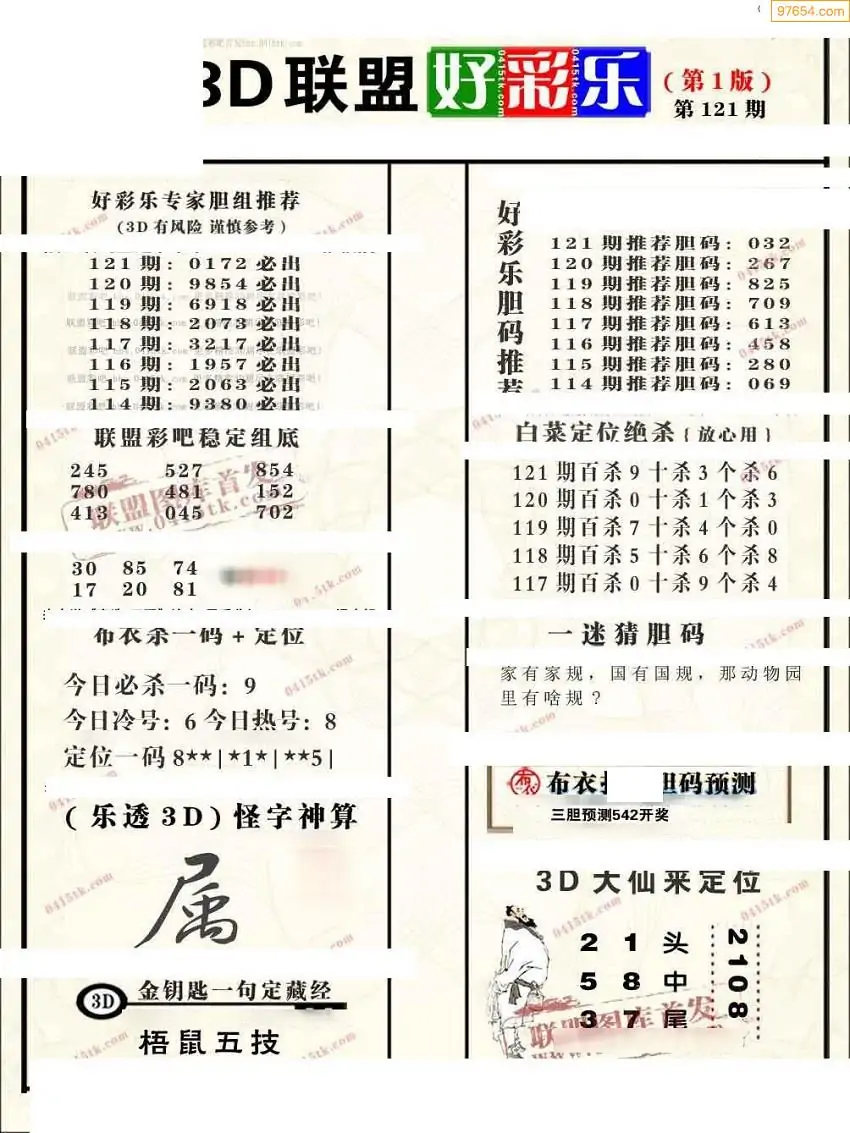 97654.com
3D联盟好彩乐
(第1版)
第121期
好彩乐专家胆组推荐
(3D有风险 谨慎参考)
121期：0172必出
120期：9854必出
119期：6918必出
118期：2073必出
117期：3217必出
116期：1957必出
115期：2063必出
114期：9380必出
联盟彩吧稳定组底
245 527 854
780 481 152
413 045 702
30 85 74
17 20 81
布衣杀一码+定位
今日必杀一码：9
今日冷号：6 今日热号：8
定位一码8**|*1*|**5|
(乐透3D)怪字神算
属
3D
金钥匙一句定藏经
梧鼠五技
好彩乐胆码推荐
121期推荐胆码：032
120期推荐胆码：267
119期推荐胆码：825
118期推荐胆码：709
117期推荐胆码：613
116期推荐胆码：458
115期推荐胆码：280
114期推荐胆码：069
白菜定位绝杀{放心用}
121期百杀9十杀3个杀6
120期百杀0十杀1个杀3
119期百杀7十杀4个杀0
118期百杀5十杀6个杀8
117期百杀0十杀9个杀4
一迷猜胆码
家有家规，国有国规，那动物园
里有啥规？
布衣 胆码预测
三胆预测542开奖
3D大仙来定位
2 1 头
5 8 中
3 7 尾
2108
联盟图库首发
www.0415tk.com
联盟图库首发
0415tk.com